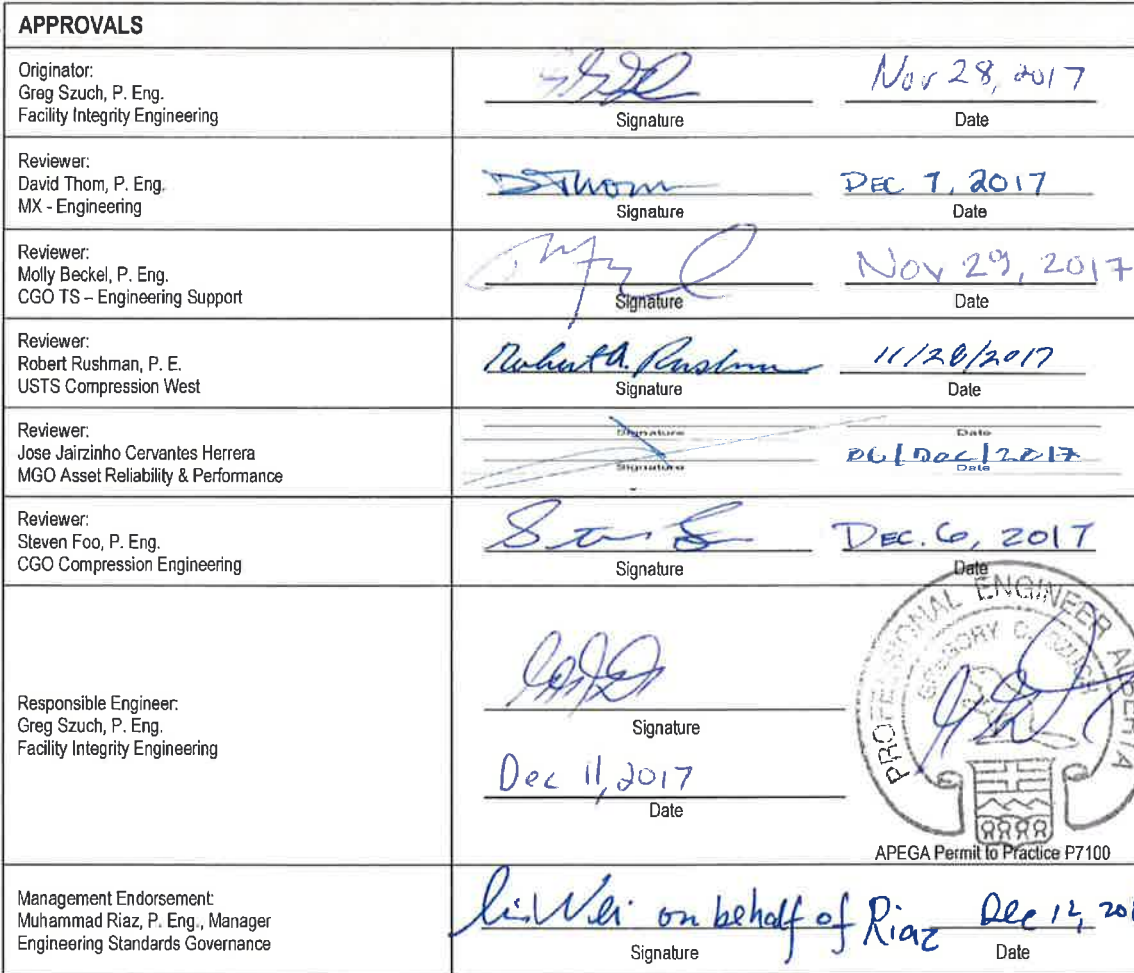 APPROVALS
Originator:
Greg Szuch, P. Eng.
Facility Integrity Engineering
Nov 28, 2017
Signature Date
Reviewer:
David Thom, P. Eng.
MX - Engineering
D Thom DEC 7, 2017
Signature Date
Reviewer:
Molly Beckel, P. Eng.
CGO TS – Engineering Support
Nov 29, 2017
Signature Date
Reviewer:
Robert Rushman, P. E.
USTS Compression West
Robert A. Rushman 11/28/2017
Signature Date
Reviewer:
Jose Jairzinho Cervantes Herrera
MGO Asset Reliability & Performance
Signature Date
06/Dec/2017
Signature Date
Reviewer:
Steven Foo, P. Eng.
CGO Compression Engineering
DEC. 6, 2017
Signature Date
Responsible Engineer:
Greg Szuch, P. Eng.
Facility Integrity Engineering
Signature
Dec 11, 2017
Date
PROFESSIONAL ENGINEER ALBERTA
GREGORY C. SZUCH
APEGA Permit to Practice P7100
Management Endorsement:
Muhammad Riaz, P. Eng., Manager
Engineering Standards Governance
on behalf of Riaz Dec 12, 201
Signature Date